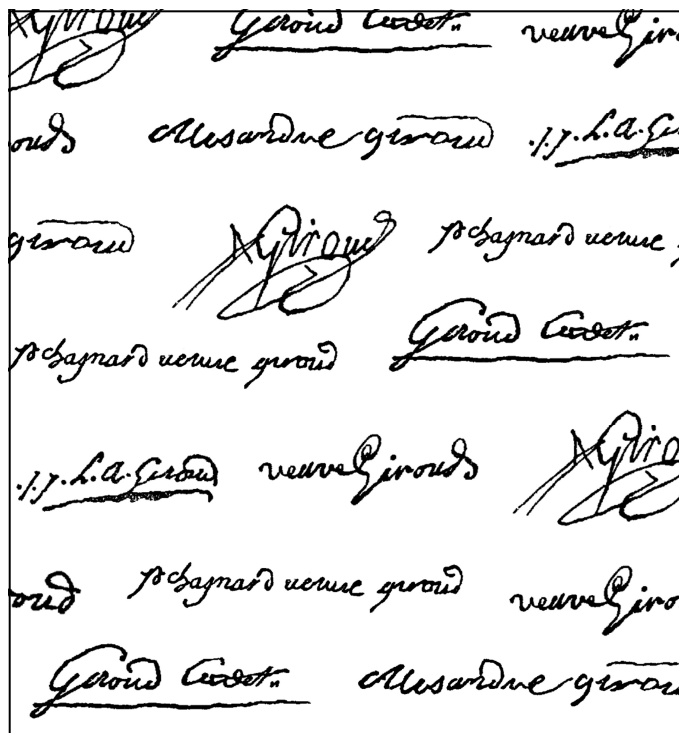 AGiroud Giroud Cadet.. veuveGiro
ouds Allexandre giroud .J.J.L.A.Gi
giroud AGiroud veuve
veuve giroud Giroud Cadet..
.J.J.L.A.Giroud veuveGirouds AGiro
oud veuve giroud veuveGiro
Giroud Cadet.. Allexandre girou